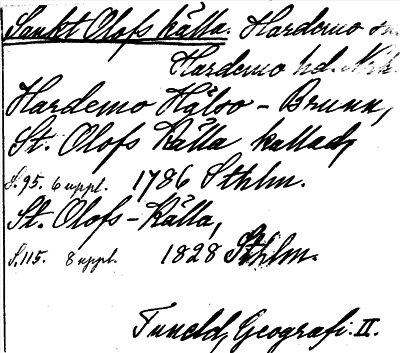 Sankt Olofs källa. Hardemo sn
Hardemo hd. Nrk.
Hardemo Hälso-Brunn,
St. Olofs Källa kallad,
S. 95. 6 uppl. 1786 Sthlm.
St. Olofs-Källa,
S. 115. 8 uppl. 1828 Sthlm.
Tuneld, Geografi. II.